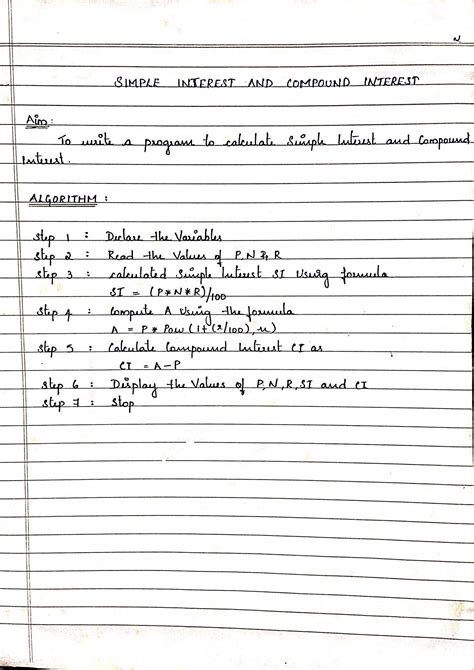 SIMPLE INTEREST AND COMPOUND INTEREST
Aim :
To write a program to calculate Simple Interest and Compound
Interest.
ALGORITHM :
Step 1 : Declare the Variables
Step 2 : Read the Values of P, N & R
Step 3 : calculated Simple Interest SI Using formula
SI = (P*N*R)/100
Step 4 : Compute A Using the formula
A = P * Pow (1+(r/100), n)
Step 5 : Calculate Compound Interest CI as
CI = A-P
Step 6 : Display the Values of P, N, R, SI and CI
Step 7 : Stop